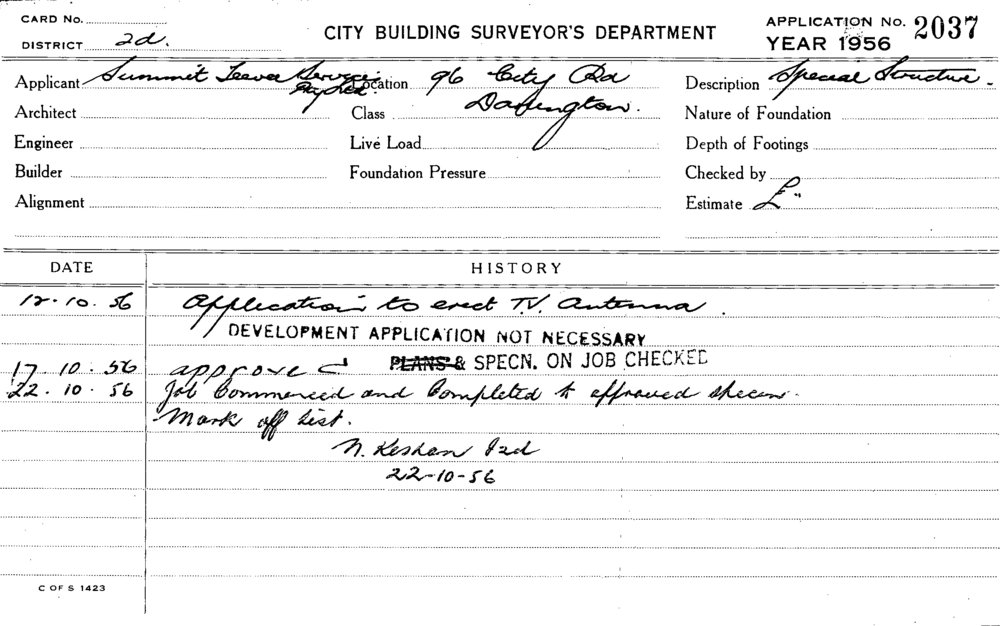 CARD No.
DISTRICT 2d.
CITY BUILDING SURVEYOR'S DEPARTMENT
APPLICATION No. 2037
YEAR 1956
Applicant Summit Service Pty Ltd. Location 96 City Rd Description Special Structure
Architect Class Darlington. Nature of Foundation
Engineer Live Load Depth of Footings
Builder Foundation Pressure Checked by
Alignment Estimate £
DATE HISTORY
12.10.56 Application to erect T.V. Antenna.
DEVELOPMENT APPLICATION NOT NECESSARY
17.10.56 approved PLANS & SPECN. ON JOB CHECKED
22.10.56 Job Commenced and Completed to approved specn.
Mark off list.
22-10-56
C OF S 1423